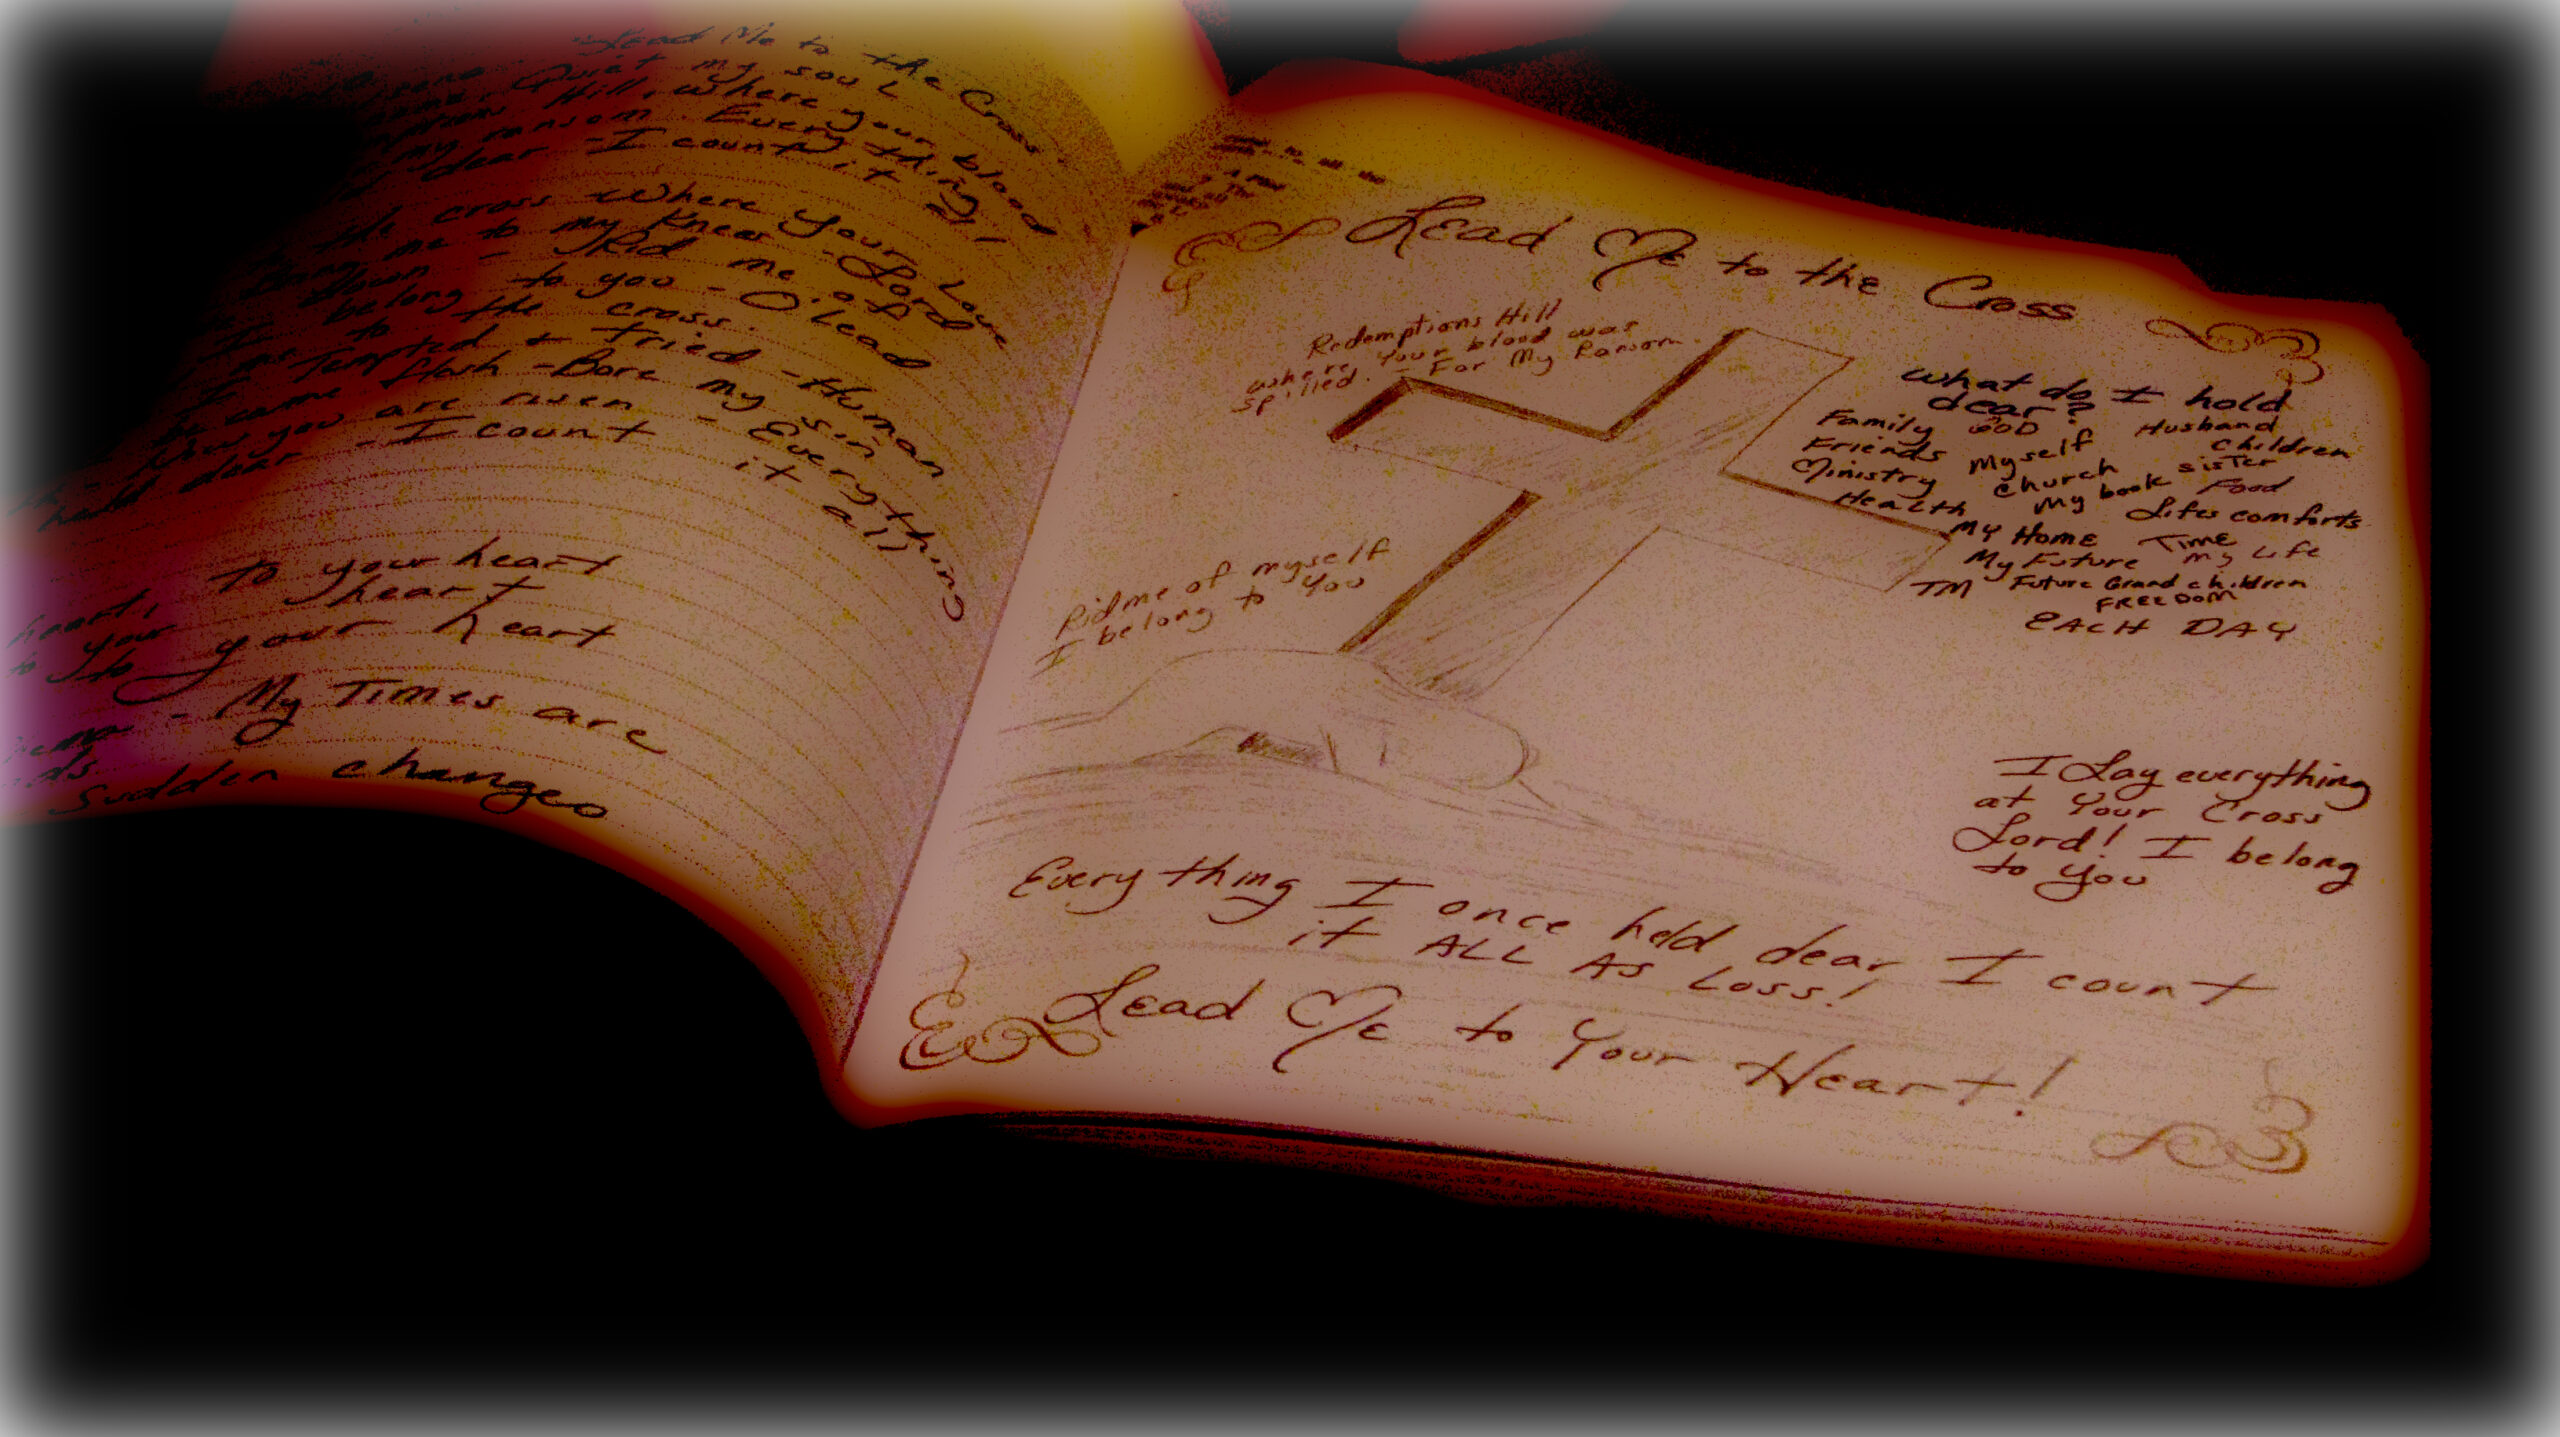 Lead Me to the Cross
Quiet my soul
Hill, where your blood
my ransom. Everything
dear - I count it all
the cross where Your Love
me to my Knees - Lord
down - Rid me of
I belong to you - O Lead
me to the cross.
I Tempted + Tried - Human
became flesh - Bore my sin
Now you are risen - Everything
held dear - I count it all
heart, to your heart
to your heart
to your heart
- My Times are
Sudden changes
Lead Me to the Cross
Redemptions Hill
where Your blood was
spilled. - For My Ransom.
What do I hold
dear?
Family GOD Husband
Friends Myself Children
Ministry Church sister
Health My book Food
Lifes comforts
My Home Time
My Future My Life
TM Future Grand children
FREEDOM
EACH DAY
Rid me of myself
I belong to You
I Lay everything
at Your Cross
Lord! I belong
to you
Everything I once held dear, I count
it ALL AS Loss!
Lead Me to Your Heart!